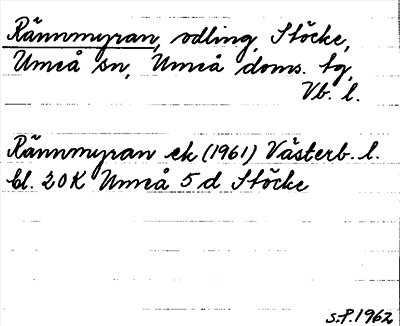 Rännmyran, odling, Stöcke,
Umeå sn, Umeå doms. tg,
Vb. l.
Rännmyran ek (1961) Västerb. l.
bl. 20K Umeå 5d Stöcke
S.P. 1962